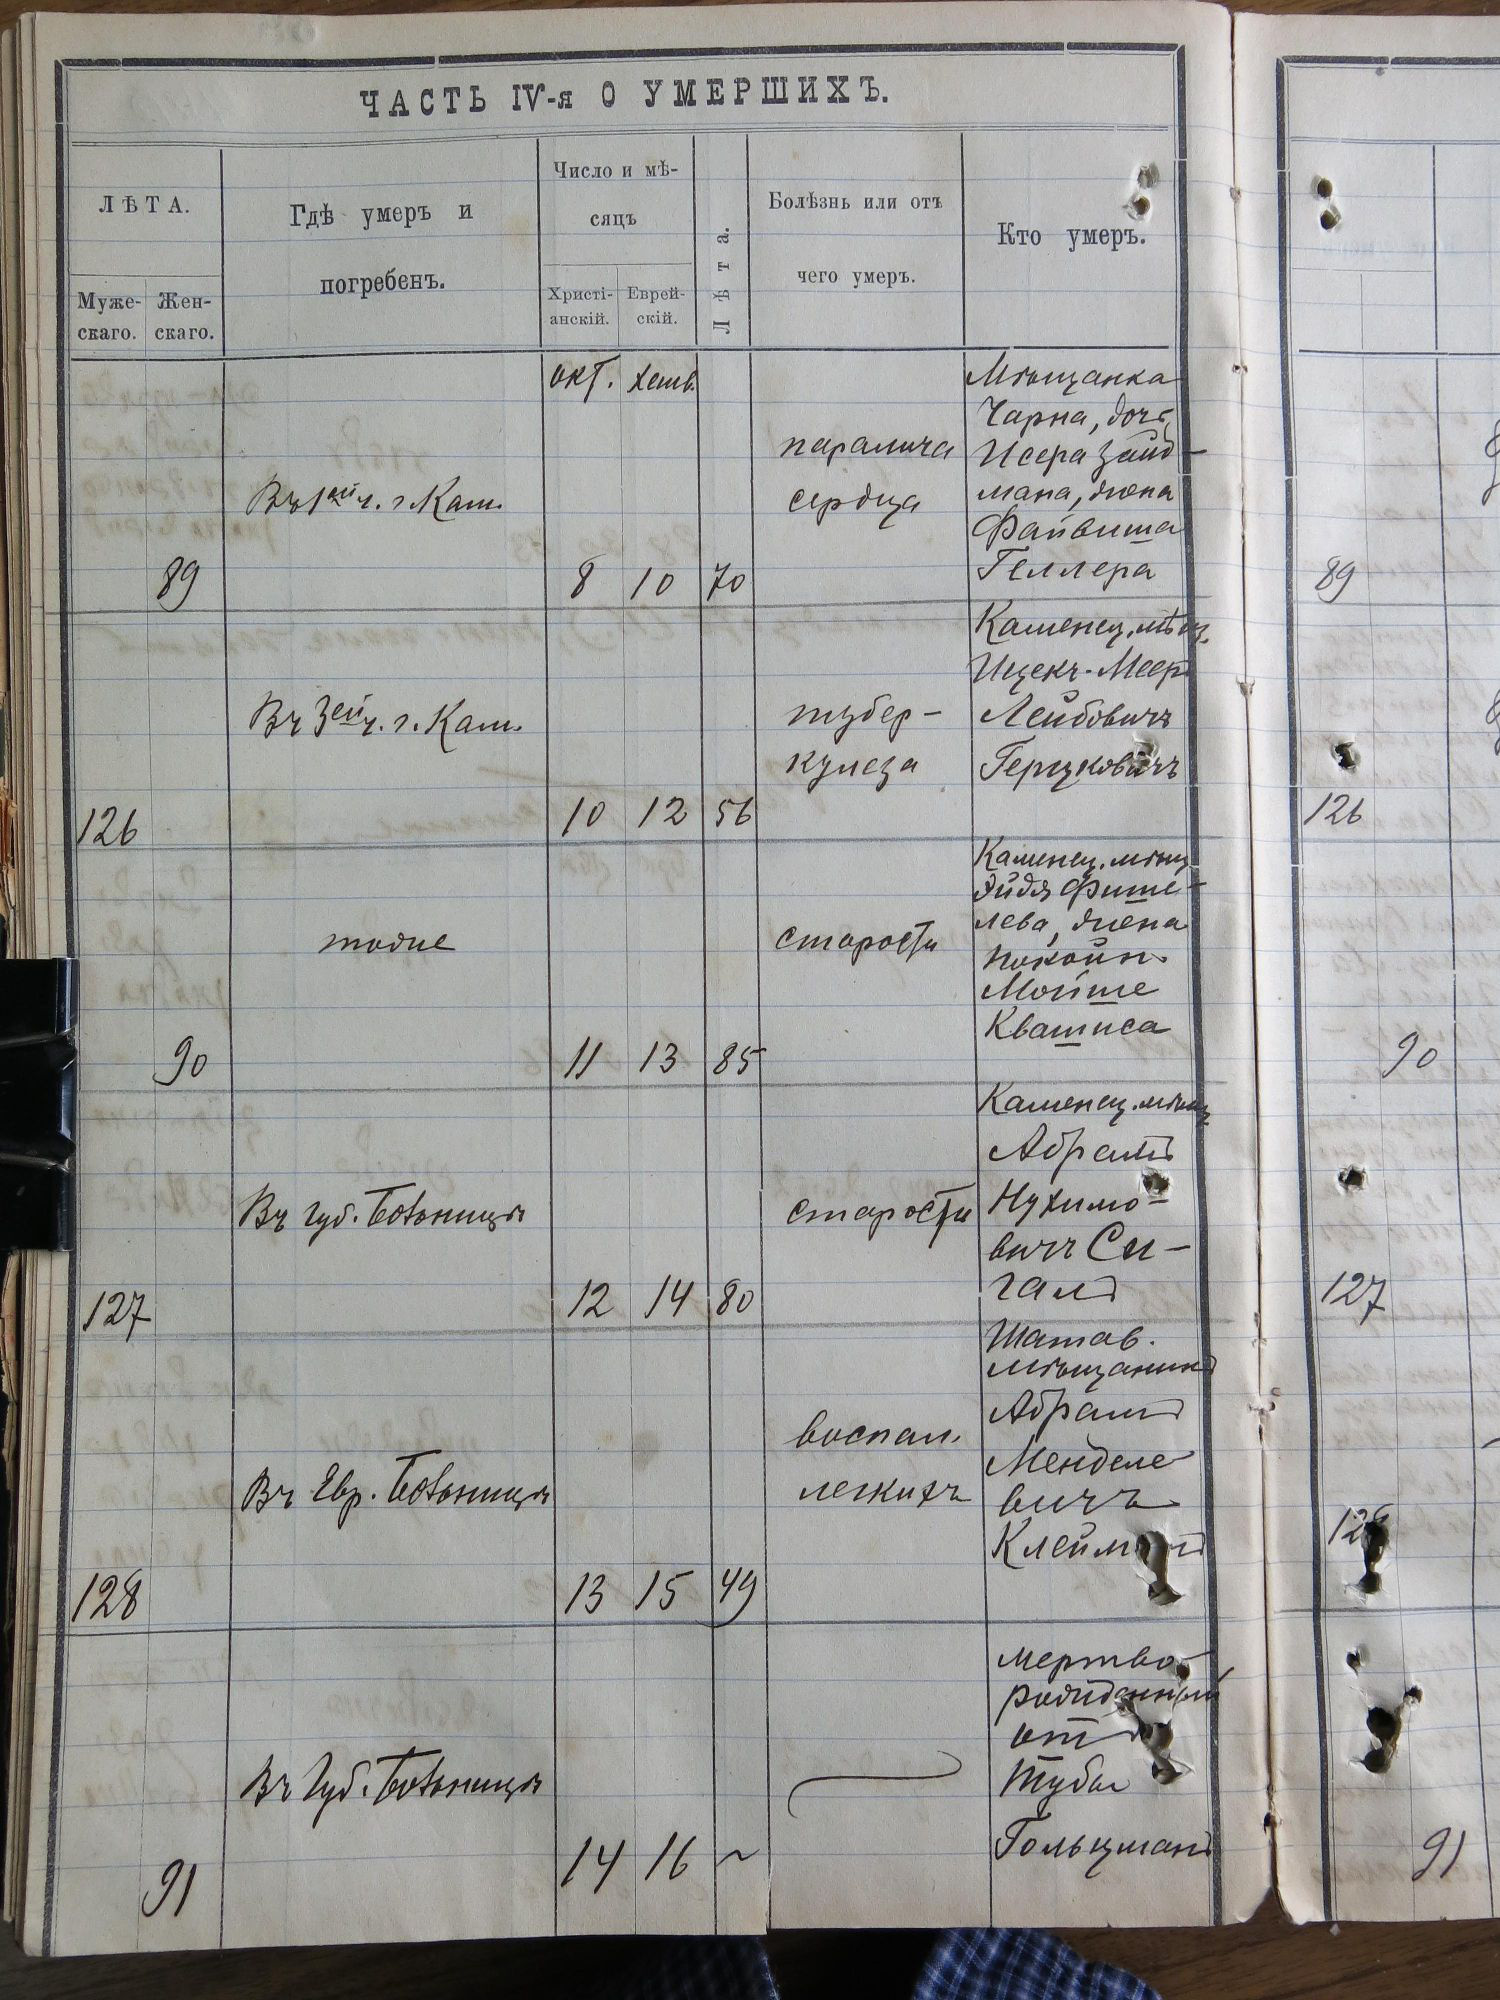 ЧАСТЬ IV-я О УМЕРШИХЪ.
ЛѢТА.
Муже-
скаго.
Жен-
скаго.
Гдѣ умеръ и
погребенъ.
Число и мѣ-
сяцъ
Христі-
анскій.
Еврей-
скій.
Лѣта.
Болѣзнь или отъ
чего умеръ.
Кто умеръ.
окт. хешв.
89
Въ 1ей ч. г. Кам.
8 10 70
паралича
сердца
Мѣщанка
Чарна, дочь
Исера Зайд-
мана, жена
Файвиша
Геллера
89
126
Въ 3ей ч. г. Кам.
10 12 56
тубер-
кулеза
Каменец. мѣщ.
Ицекъ-Меер
Лейбовичъ
Герцковичъ
126
90
тоже
11 13 85
старости
Каменец. мѣщ
Эйдя Фише-
лева, жена
покойн.
Мойше
Квашиса
90
127
Въ губ. Больницѣ
12 14 80
старости
Каменец. мѣщ
Абрамъ
Нухимо-
вичъ Си-
галъ
127
128
Въ Евр. Больницѣ
13 15 49
воспал.
легкихъ
Шатав.
мѣщанинъ
Абрамъ
Менделе
вичъ
128
91
Въ Губ. Больницѣ
14 16 ~
мертво
рожденный
отъ
Тубы
Гольцманъ
91